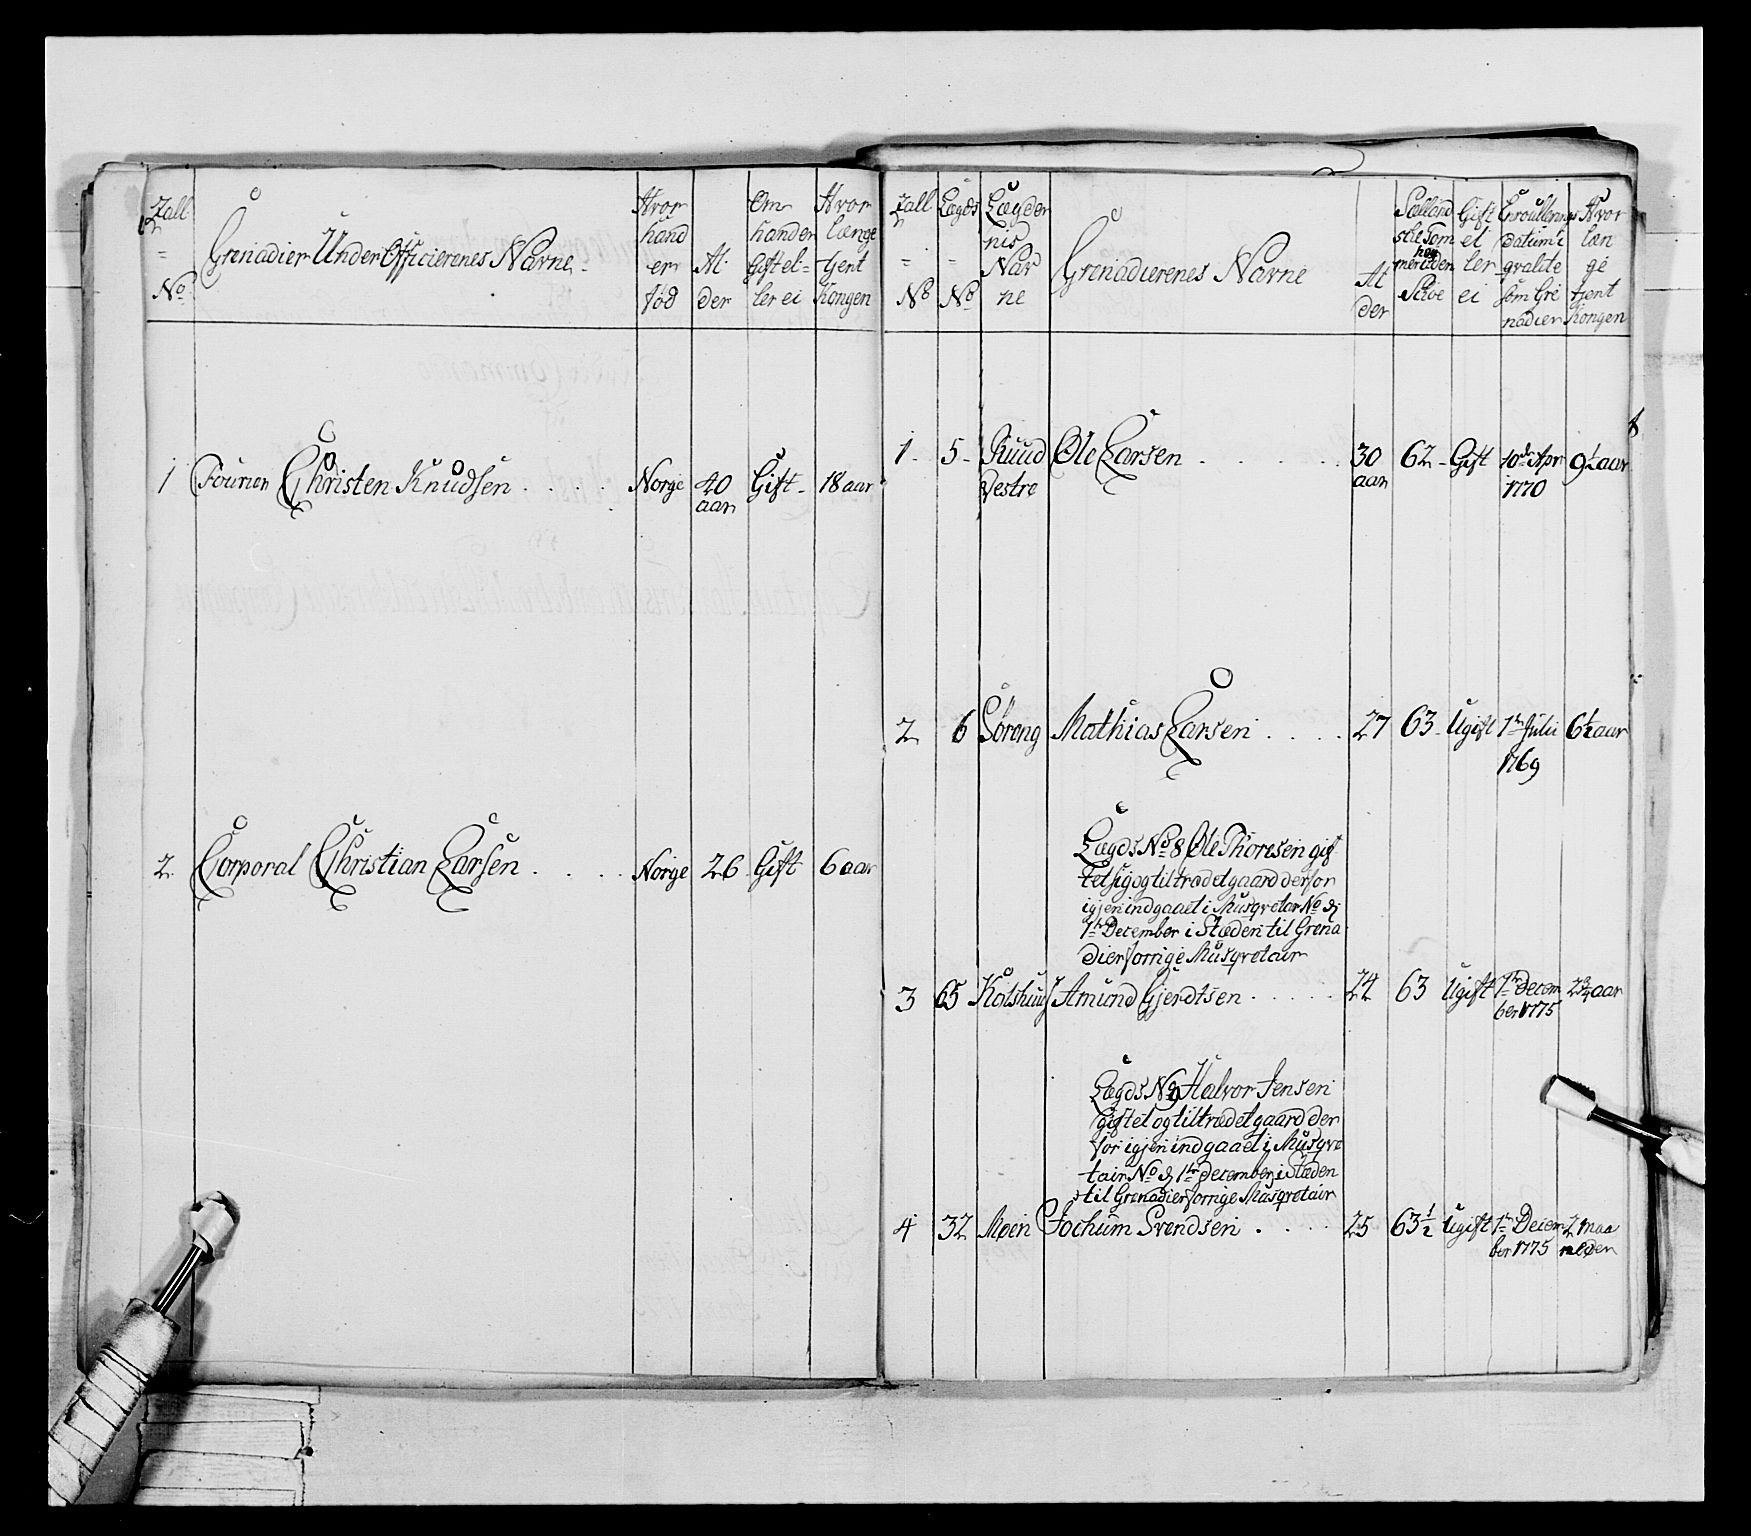 Tall = No
Grenadier Under Officierenes Navne
Hvor hand er fød
Al der
Om handen Gift el= ler ei
Hvor længe tient Kongen
1 Fourier Christen Knudsen . . . . Norge 40 aar Gift 18 aar
2 Corporal Christian Larsen . . . . Norge 26 Gift 6 aar
Tall = No
Lægds = No
Lægder nis Nav ne
Grenadierenes Navne
Al der
Gift el ler ei
Enroullerings datum i qvalite som Gre nadier
Hvor læn ge tient Kongen
8
1 5 Ruud Vestre Ole Larsen . . . . 30 aar 62 Gift 10de Apr 1770 9½ aar
2 6 Søreng Mathias Larsen . . . . 27 63 Ugift 1te Julii 1769 6½ aar
Lægds No 8 Ole Thoresen gif
tet sig og tiltrædet gaard derfor
igjen indgaaet i Musqvetair No d
1te December i Stæden til Grena
dier forrige Musqvetair
3 65 Amund Gjerdtsen . . . . 24 63 Ugift 1te Decem ber 1775 2¾ aar
Lægds No 9 Halvor Jensen
giftet og tiltrædet gaard der
for igjen indgaaet i Musqve
tair No d 1te December i Stæden
til Grenadier forrige Musqvetair
4 32 Moen Jochum Svendsen . . . . 25 63½ Ugift 1te Decem ber 1775 2 maa neder